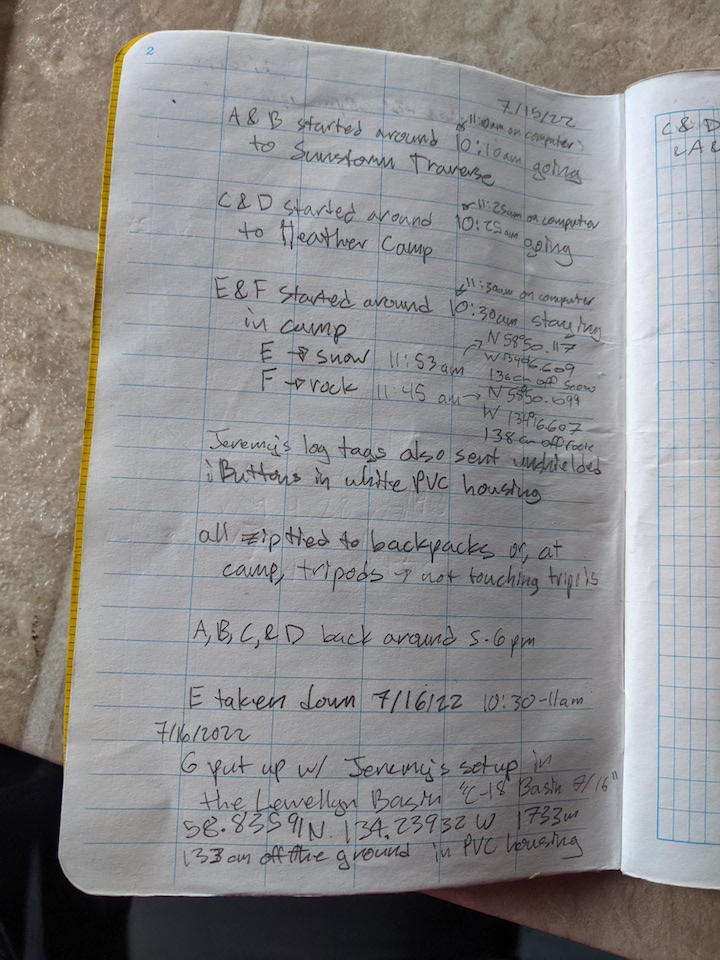 2
7/15/22
A & B started around 10:10am going
or 11:10am on computer
to Sunstorm Traverse
C & D started around 10:25am going
or 11:25am on computer
to Heather Camp
E & F started around 10:30am staying
or 11:30am on computer
in camp
E → snow 11:53am → N 58°50.117
W 134°6.609
136cm off snow
F → rock 11:45 am → N 58°50.099
W 134°6.607
138cm off rock
Jeremy's log tags also sent unshielded
iButtons in white PVC housing
all ziptied to backpacks or, at
camp, tripods → not touching tripods
A, B, C, & D back around 5-6pm
E taken down 7/16/22 10:30-11am
7/16/2022
G put up w/ Jeremy's setup in
the Lewellyn Basin "C-18 Basin 7/16"
58.83591N 134.23932W 1733m
133cm off the ground in PVC housing
C & D
& A &